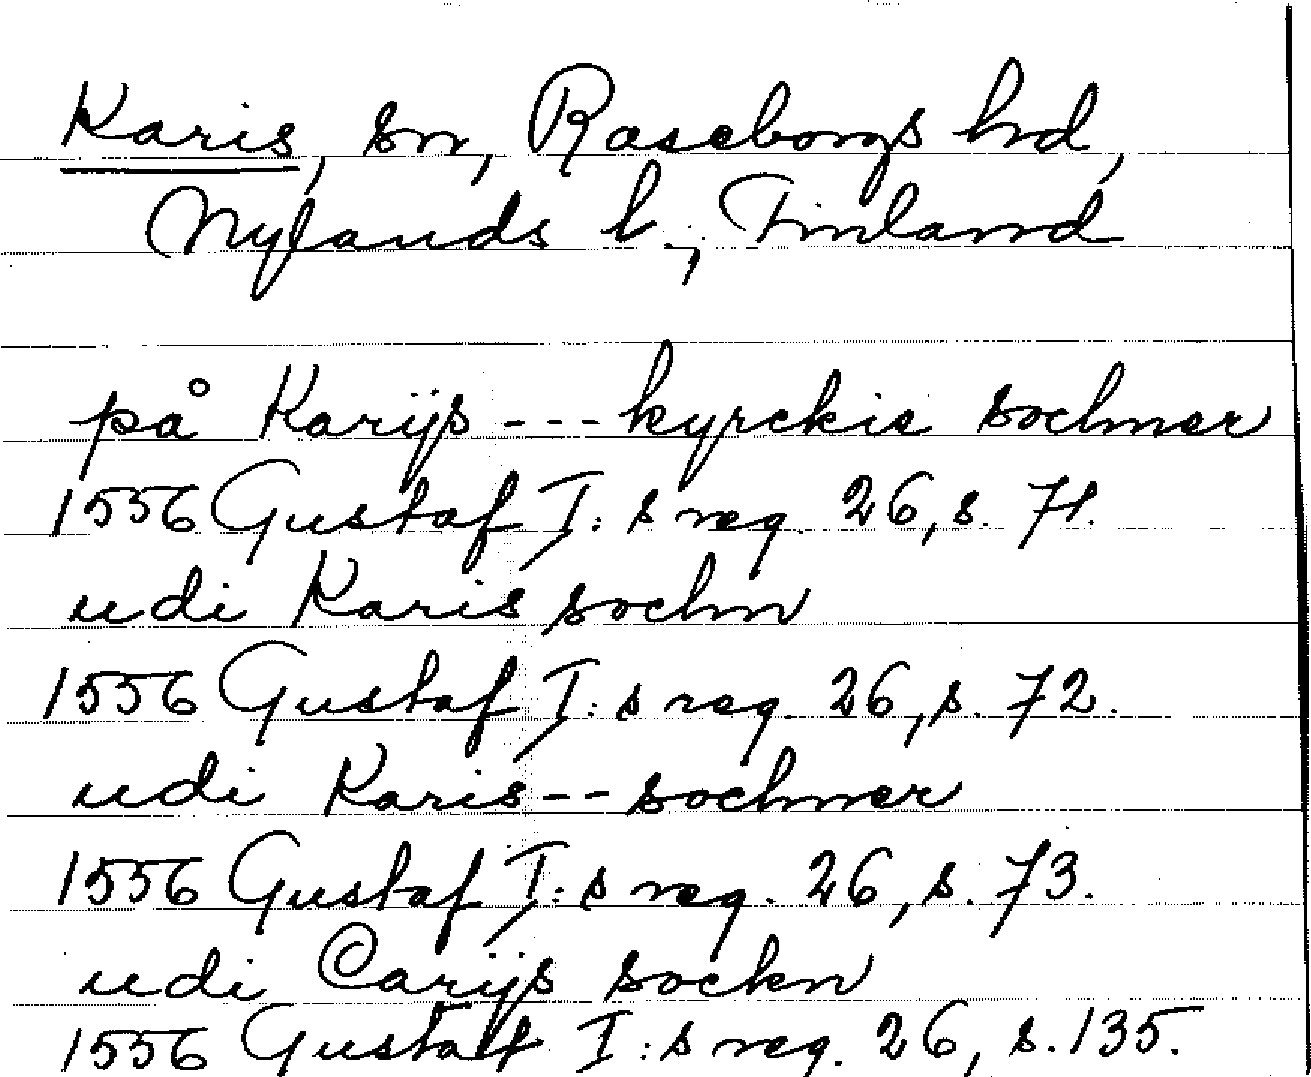 Karis, sn, Raseborgs hd,
Nylands l., Finland
på Karijs --- kyrckie sochner
1556 Gustaf I:s reg. 26, s. 71.
udi Karis sochn
1556 Gustaf I:s reg. 26, s. 72.
udi Karis -- sochner
1556 Gustaf I:s reg. 26, s. 73.
udi Carijs sockn
1556 Gustaf I:s reg. 26, s. 135.